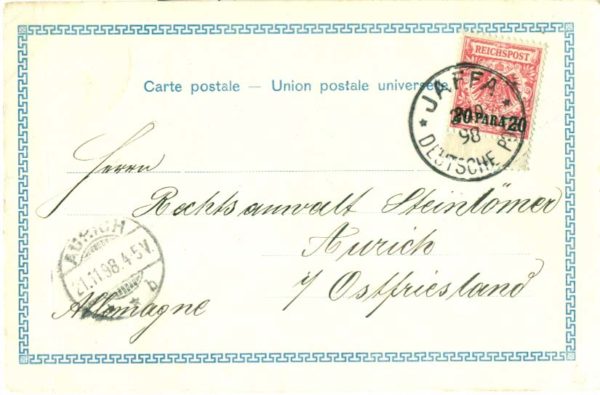 Carte postale — Union postale universelle
REICHSPOST
20 PARA 20
JAFFA
98
DEUTSCHE P.
Herrn
Rechtsanwalt Steintömer
Aurich
i/ Ostfriesland
Allemagne
AURICH
21.11.98.4-5V.
* * b